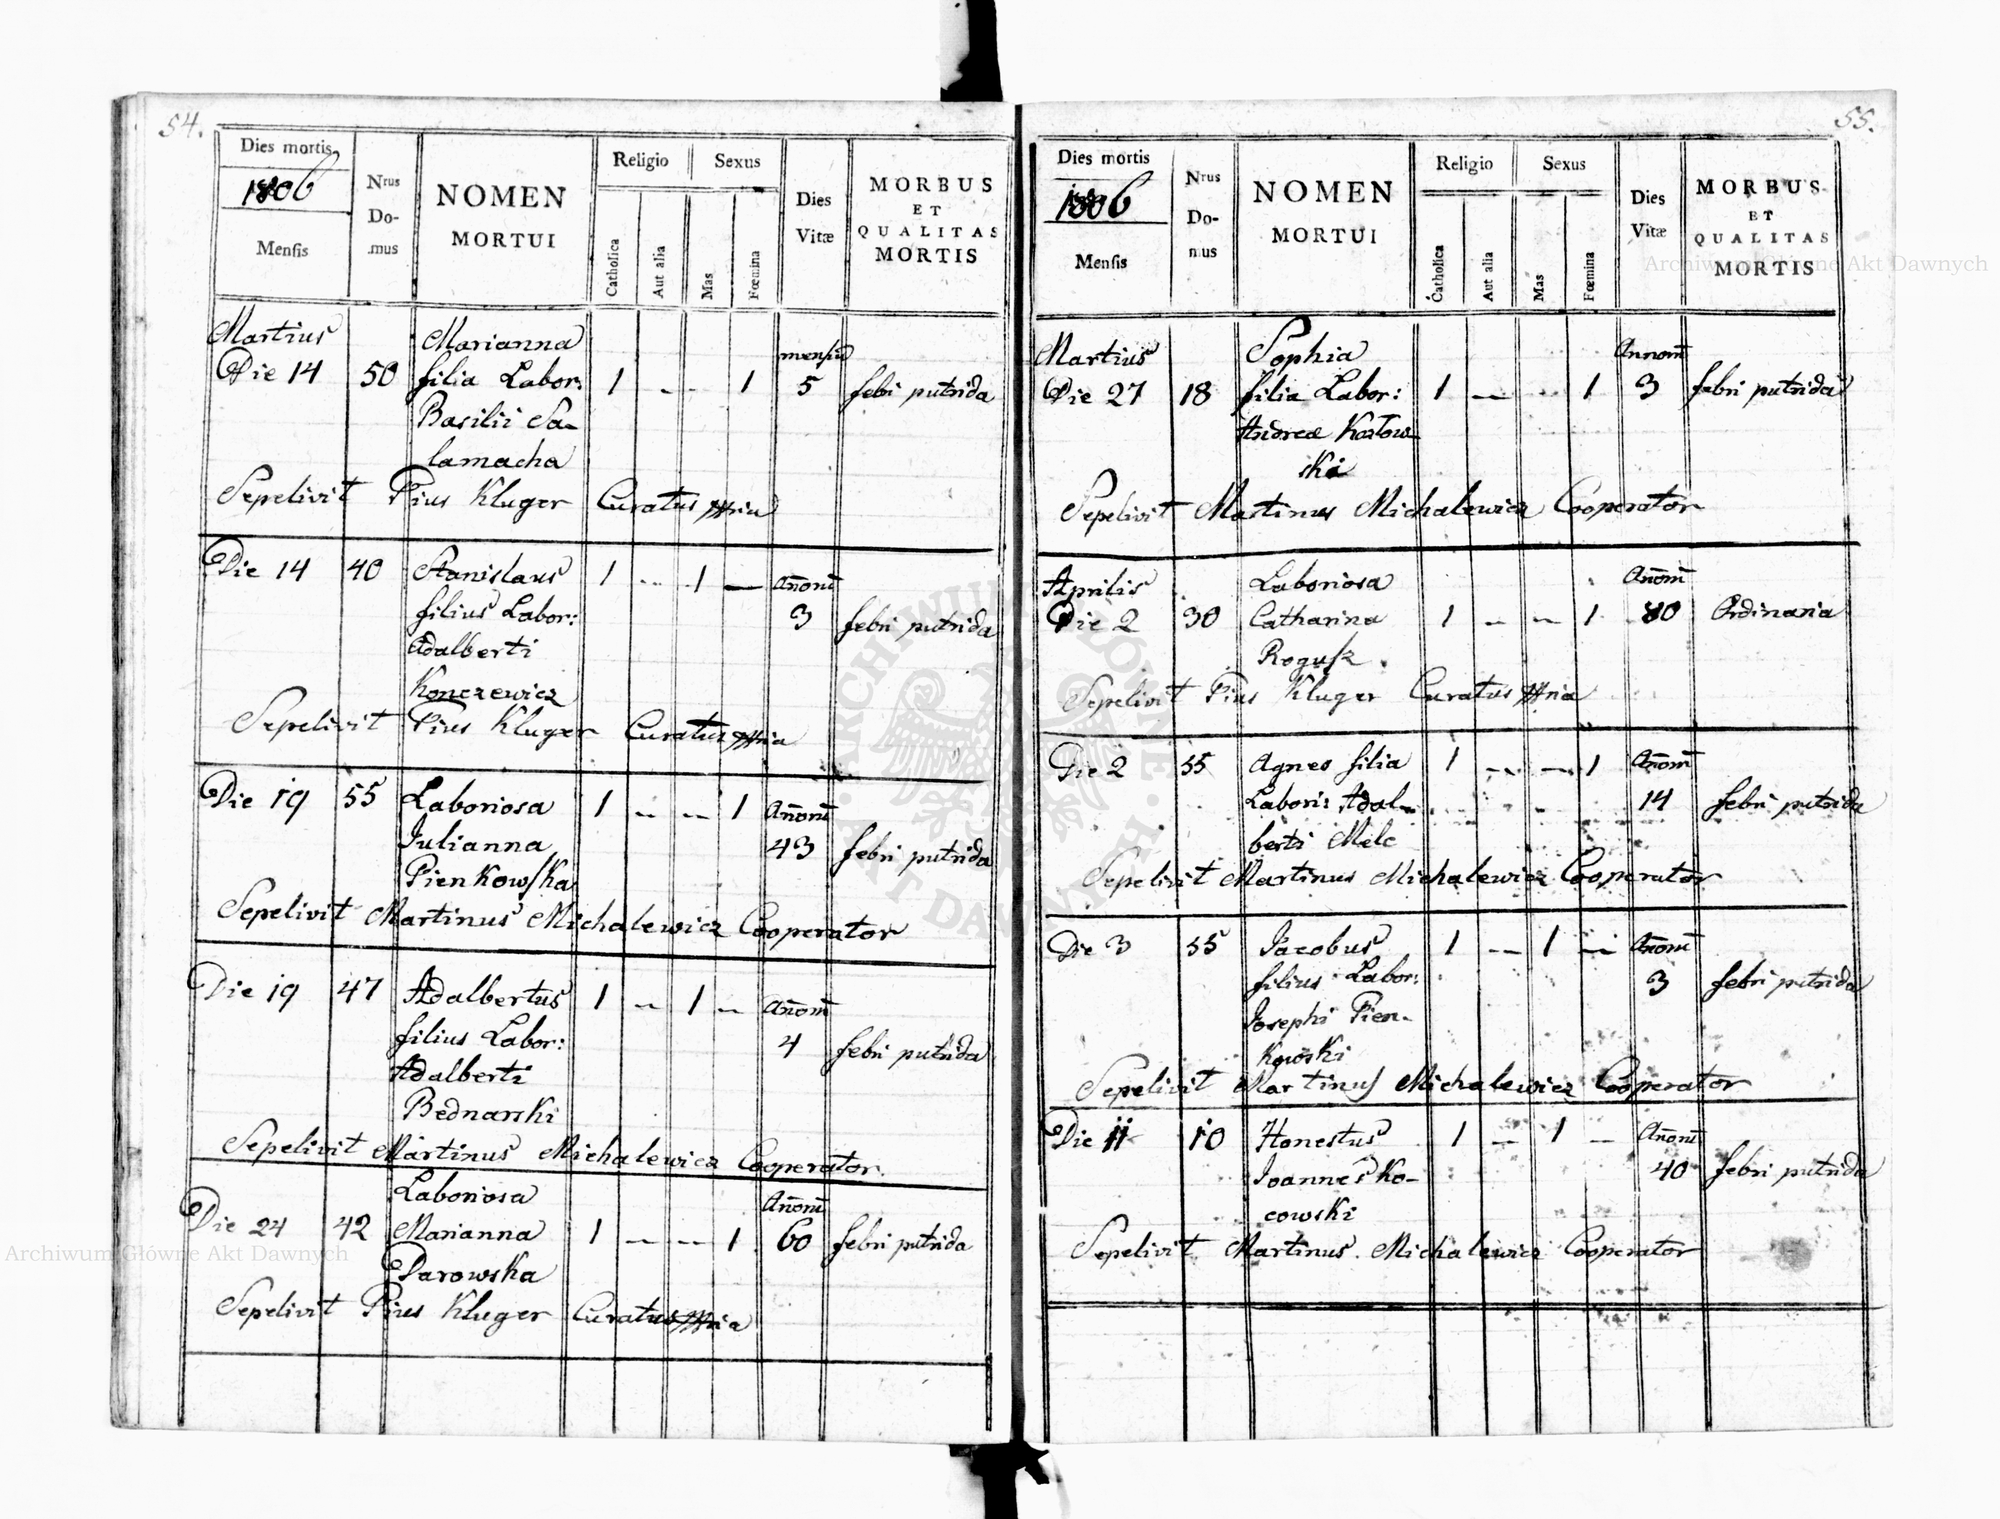 54.
Dies mortis
1806
Mensis
Nrus
Do-
mus
NOMEN
MORTUI
Religio
Sexus
Catholica
Aut alia
Mas
Fœmina
Dies
Vitæ
MORBUS
ET
QUALITAS
MORTIS
Martius
Marianna
mensiū
Die 14 50 filia Labor: 1 - - 1 5 febri putrida
Basilii Sa-
lamacha
Sepelivit Pius Kluger Curatus
Die 14 40 Stanislaus 1 - 1 - Añorū
filius Labor: 3 febri putrida
Adalberti
Konczewicz
Sepelivit Pius Kluger Curatus
Die 19 55 Laboriosa 1 - - 1 Añorū
Iulianna 43 febri putrida
Pienkowska
Sepelivit Martinus Michalewicz Cooperator
Die 19 47 Adalbertus 1 - 1 - Añorū
filius Labor: 4 febri putrida
Adalberti
Bednarski
Sepelivit Martinus Michalewicz Cooperator.
Laboriosa Añorū
Die 24 42 Marianna 1 - - 1 60 febri putrida
Parowska
Sepelivit Pius Kluger Curatus
55.
Dies mortis
1806
Mensis
Nrus
Do-
mus
NOMEN
MORTUI
Religio
Sexus
Catholica
Aut alia
Mas
Fœmina
Dies
Vitæ
MORBUS
ET
QUALITAS
MORTIS
Martius Sophia Annorū
Die 27 18 filia Labor: 1 - - 1 3 febri putrida
Andreæ Kozłow-
ski
Sepelivit Martinus Michalewicz Cooperator
Aprilis Laboriosa Añorū
Die 2 30 Catharina 1 - - 1 80 Ordinaria
Rogusz
Sepelivit Pius Kluger Curatus
Die 2 55 Agnes filia 1 - - 1 Añorū
Labori: Adal- 14 febri putrida
berti Melc
Sepelivit Martinus Michalewicz Cooperator
Die 3 55 Jacobus 1 - 1 - Añorū
filius Labor: 3 febri putrida
Josephi Pien-
kowski
Sepelivit Martinus Michalewicz Cooperator
Die 11 10 Honestus 1 - 1 - Añorū
Joannes Ko- 40 febri putrida
cowski
Sepelivit Martinus Michalewicz Cooperator
Archiwum Główne Akt Dawnych
Archiwum Główne Akt Dawnych
ARCHIWUM GŁÓWNE · AKT DAWNYCH ·